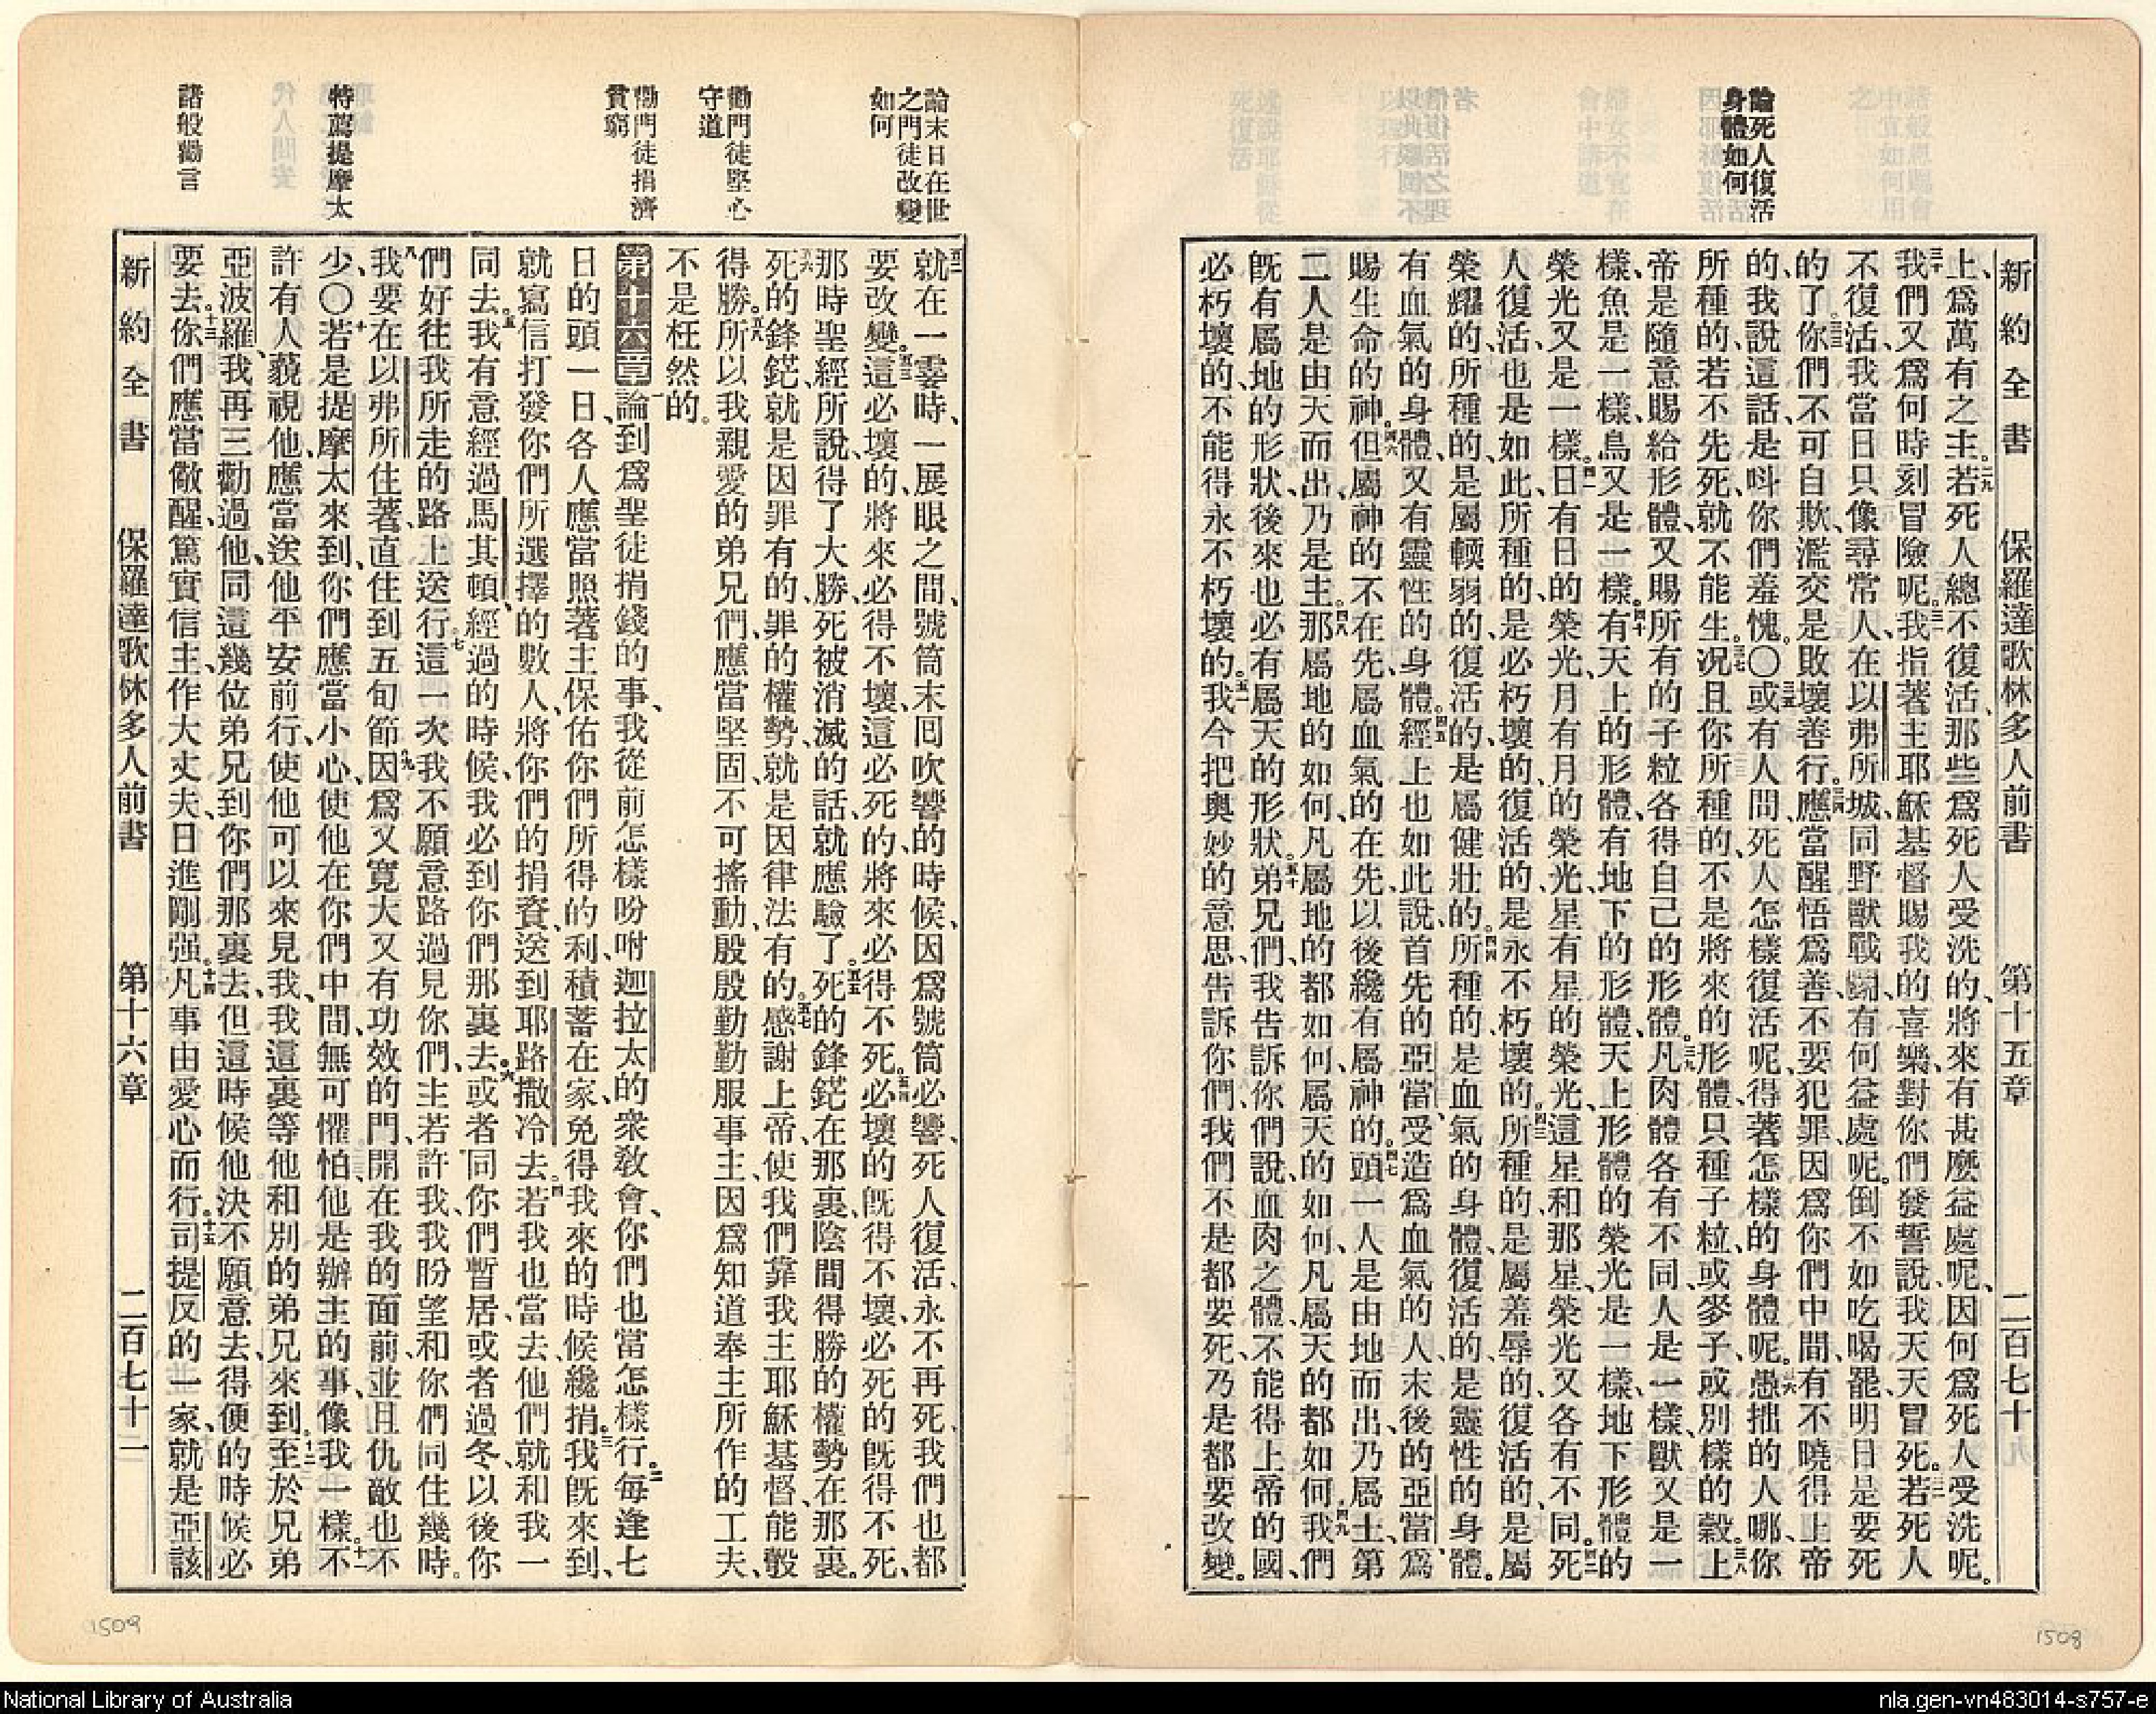 論死人復活
身體如何
新約全書　保羅達歌林多人前書　第十五章　二百七十
上、爲萬有之主。二九若死人總不復活、那些爲死人受洗的、將來有甚麽益處呢、因何爲死人受洗呢。
三十我們又爲何時刻冒險呢。三一我指著主耶穌基督賜我的喜樂、對你們發誓說、我天天冒死。三二若死人
不復活、我當日只像尋常人、在以弗所城、同野獸戰鬬、有何益處呢。倒不如吃喝罷、明日是要死
的了。三三你們不可自欺、濫交是敗壞善行。三四應當醒悟爲善、不要犯罪、因爲你們中間、有不曉得上帝
的、我說這話、是呌你們羞愧。〇三五或有人問死人怎樣復活呢、得著怎樣的身體呢。三六愚拙的人哪、你
所種的、若不先死、就不能生。三七况且你所種的、不是將來的形體、只種子粒、或麥子、或別樣的穀。三八上
帝是隨意賜給形體、又賜所有的子粒各得自己的形體。三九凡肉體各有不同、人是一樣、獸又是一
樣、魚是一樣、鳥又是一樣。四十有天上的形體、有地下的形體、天上形體的榮光是一樣、地下形體的
榮光又是一樣。四一日有日的榮光、月有月的榮光、星有星的榮光、這星和那星、榮光又各有不同。四二死
人復活、也是如此、所種的、是必朽壞的、復活的、是永不朽壞的。四三所種的、是屬羞辱的、復活的、是屬
榮耀的、所種的、是屬輭弱的、復活的、是屬健壯的。四四所種的、是血氣的身體、復活的、是靈性的身體。
有血氣的身體、又有靈性的身體。四五經上也如此說、首先的亞當、受造爲血氣的人、末後的亞當、爲
賜生命的神。四六但屬神的不在先、屬血氣的在先、以後纔有屬神的。四七頭一人是由地而出、乃屬土、第
二人是由天而出、乃是主。四八那屬地的如何、凡屬地的都如何、屬天的如何、凡屬天的都如何。四九我們
旣有屬地的形狀、後來也必有屬天的形狀。五十弟兄們、我告訴你們說、血肉之體、不能得上帝的國、
必朽壞的、不能得永不朽壞的。五一我今把奧妙的意思、告訴你們、我們不是都要死、乃是都要改變。
1508
論末日在世
之門徒改變
如何
勸門徒堅心
守道
勸門徒捐濟
貧窮
特薦提摩太
諸般勸言
五二就在一霎時、一展眼之間、號筒末囘吹響的時候、因爲號筒必響、死人復活、永不再死、我們也都
要改變。五三這必壞的、將來必得不壞、這必死的、將來必得不死。五四必壞的旣得不壞、必死的旣得不死、
那時聖經所說、得了大勝、死被消滅的話、就應驗了。五五死的鋒鋩在那裏、陰間得勝的權勢在那裏。
五六死的鋒鋩、就是因罪有的、罪的權勢、就是因律法有的。五七感謝上帝、使我們靠我主耶穌基督、能彀
得勝。五八所以我親愛的弟兄們、應當堅固、不可搖動、殷殷勤勤服事主、因爲知道奉主所作的工夫、
不是枉然的。
第十六章　一論到爲聖徒捐錢的事、我從前怎樣吩咐迦拉太的衆敎會、你們也當怎樣行。二每逢七
日的頭一日、各人應當照著主保佑你們所得的利、積蓄在家、免得我來的時候纔捐。三我旣來到、
就寫信打發你們所選擇的數人、將你們的捐資、送到耶路撒冷去。四若我也當去、他們就和我一
同去。五我有意經過馬其頓、經過的時候、我必到你們那裏去。六或者同你們暫居、或者過冬、以後你
們好往我所走的路上送行。七這一次我不願意路過見你們、主若許我、我盼望和你們同住幾時。
八我要在以弗所住著、直住到五旬節。九因爲又寬大又有功效的門、開在我的面前、並且仇敵也不
少、〇十若是提摩太來到、你們應當小心、使他在你們中間、無可懼怕、他是辦主的事、像我一樣。十一不
許有人藐視他、應當送他平安前行、使他可以來見我、我這裏等他和別的弟兄來到。十二至於兄弟
亞波羅、我再三勸過他、同這幾位弟兄到你們那裏去、但這時候他決不願意去、得便的時候必
要去。十三你們應當儆醒、篤實信主、作大丈夫、日進剛强。十四凡事由愛心而行。十五司提反的一家、就是亞該
新約全書　保羅達歌林多人前書　第十六章　二百七十二
1509
National Library of Australia
nla.gen-vn483014-s757-e